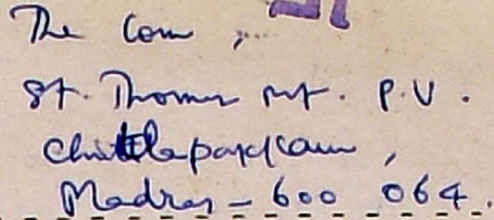 The Com,
St. Thomas Mt. P.U.
Chitlapakkam,
Madras - 600 064.